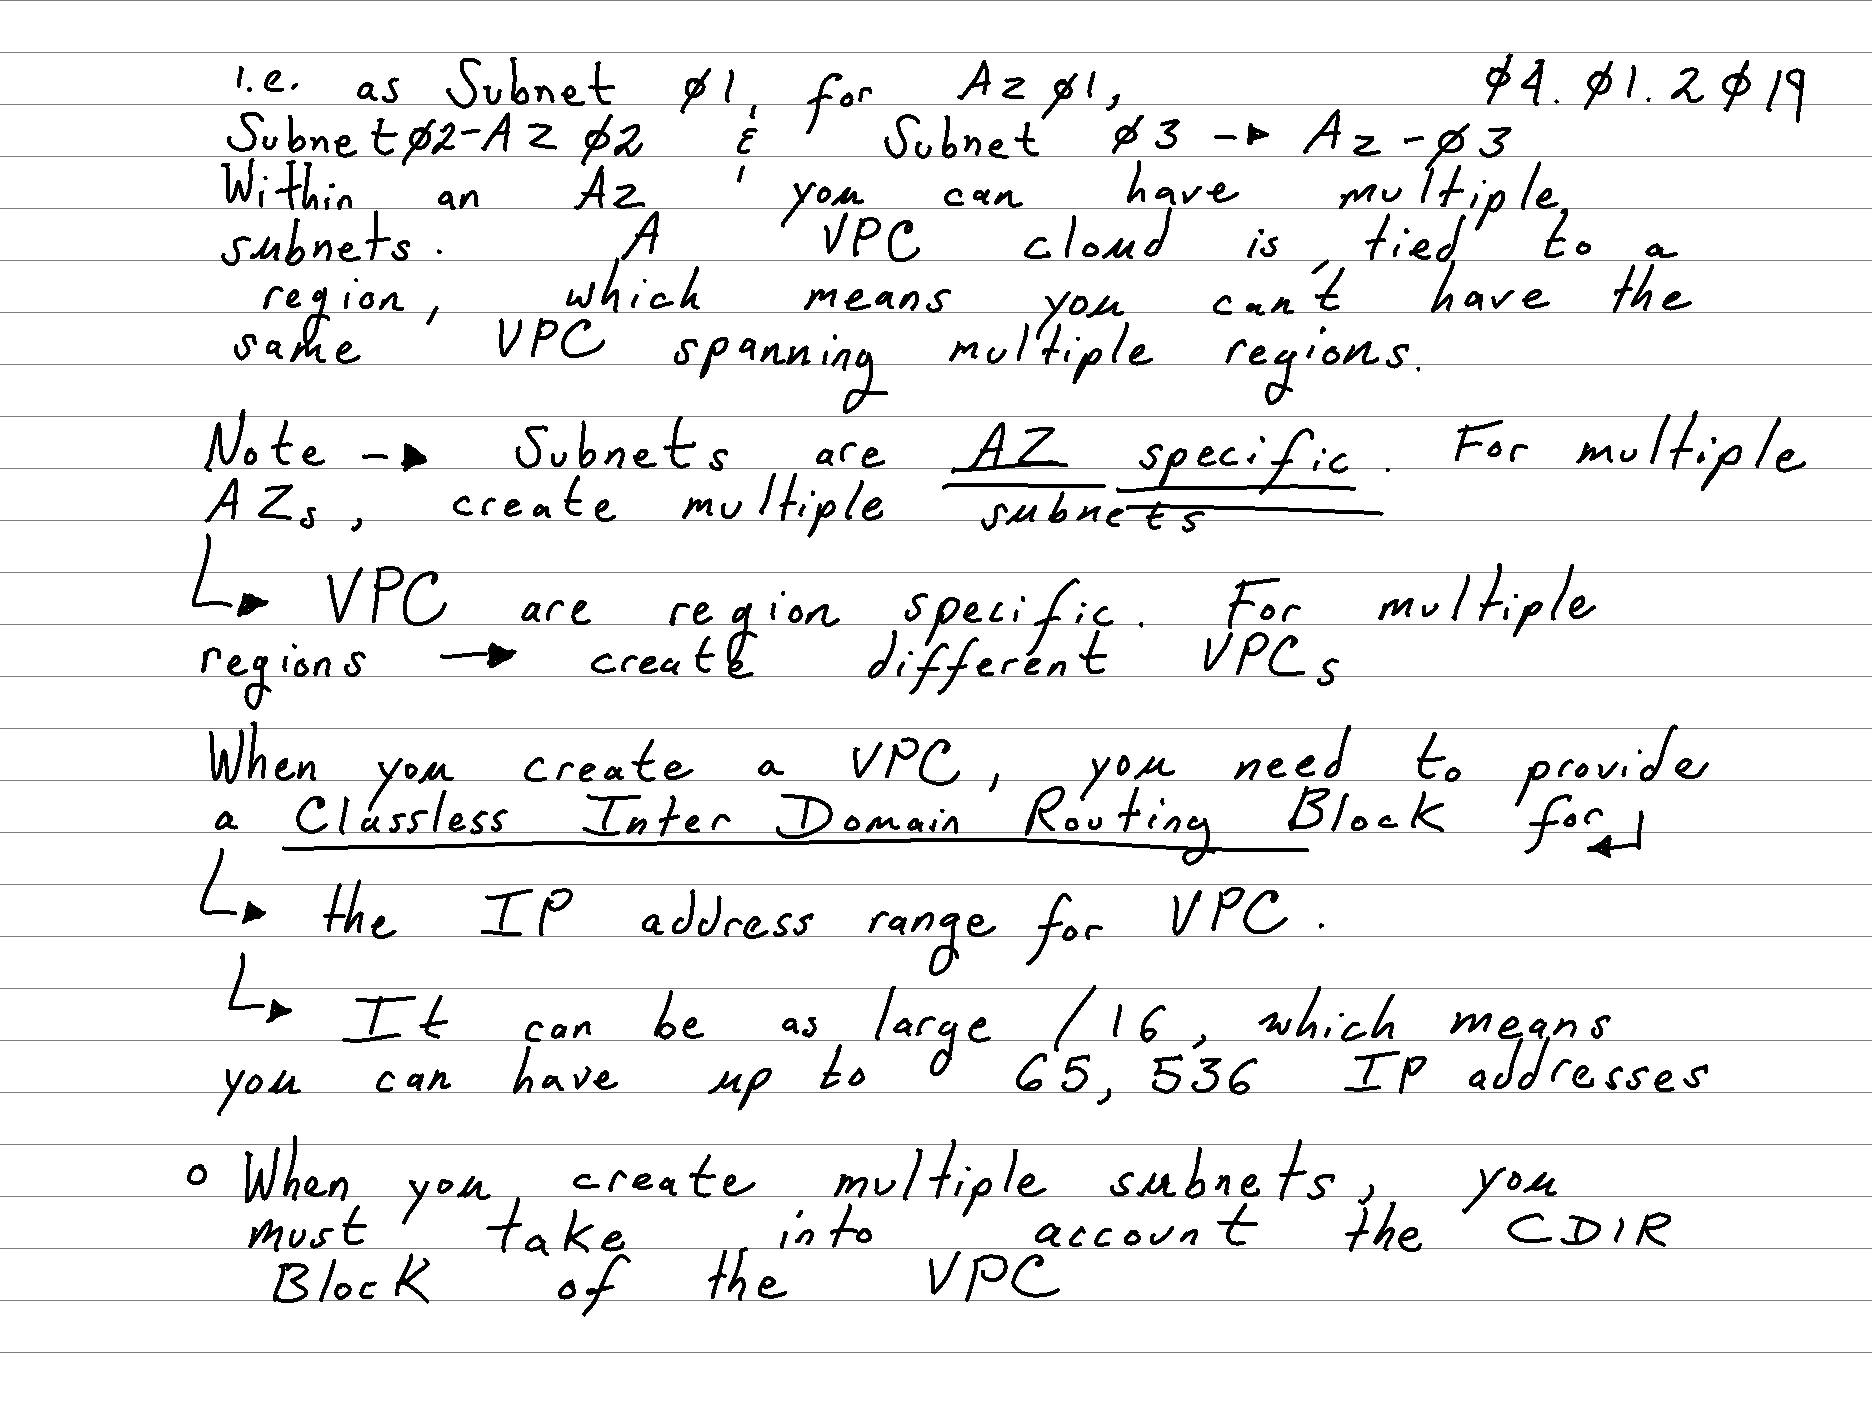 i.e. as Subnet ø1, for Az ø1, ø4.ø1.2ø19
Subnetø2-AZ ø2 & Subnet ø3 → Az-ø3
Within an Az, you can have multiple
subnets. A VPC cloud is tied to a
region, which means you can't have the
same VPC spanning multiple regions.
Note → Subnets are AZ specific. For multiple
AZs, create multiple subnets
↳ VPC are region specific. For multiple
regions → create different VPCs
When you create a VPC, you need to provide
a Classless Inter Domain Routing Block for ↵
↳ the IP address range for VPC.
↳ It can be as large /16, which means
you can have up to 65,536 IP addresses
o When you create multiple subnets, you
must take into account the CDIR
Block of the VPC